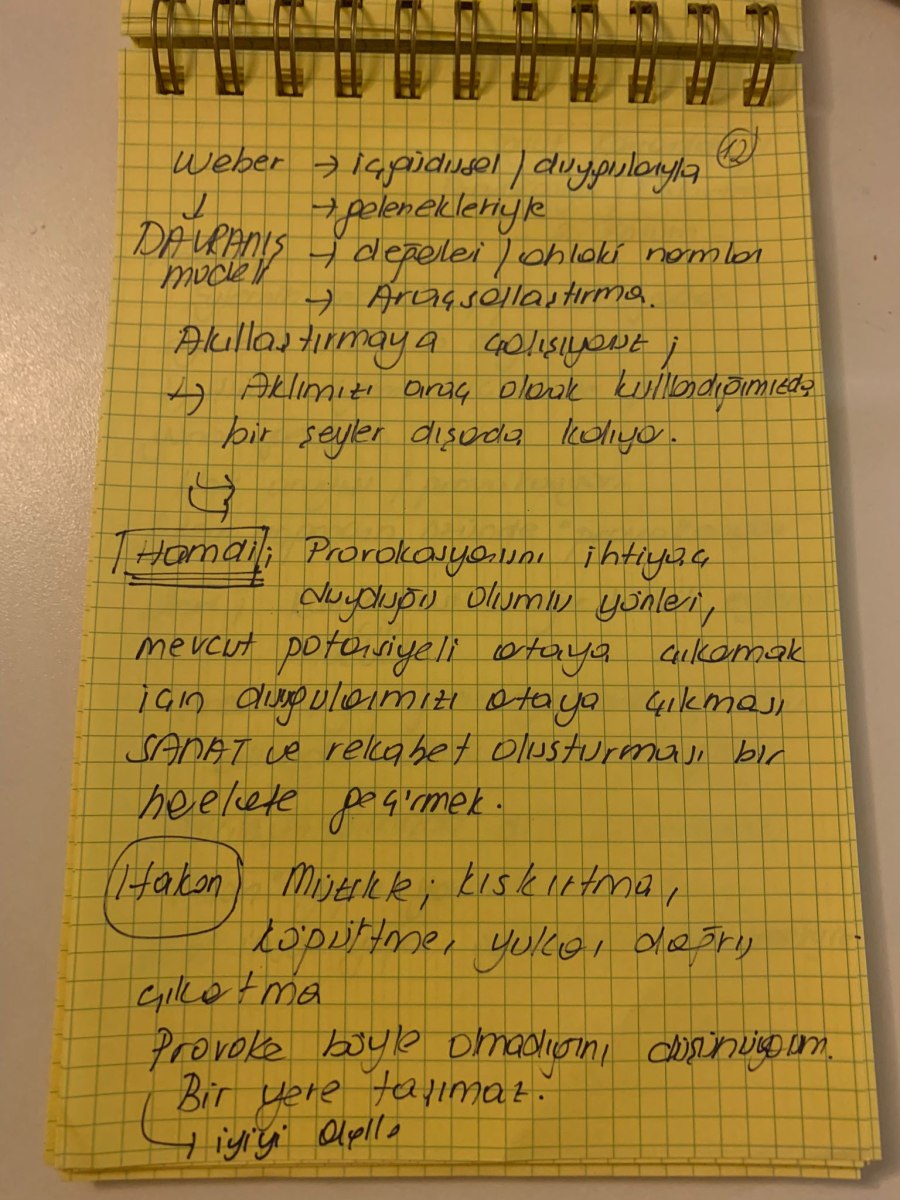 12
Weber → içgüdüsel / duygularıyla
↓ → gelenekleriyle
DAVRANIŞ → değerleri / ahlaki normlar
modeli
→ Araçsallaştırma.
Akıllaştırmaya çalışıyoruz ;
↳ Aklımızı araç olarak kullandığımızda
bir şeyler dışarda kalıyor.
Hamdi ; Provokasyonunu ihtiyaç
duyduğu olumlu yönleri,
mevcut potansiyeli ortaya çıkarmak
için duygularımızı ortaya çıkması
SANAT ve rekabet oluşturması bir
harekete geçirmek.
Hakan Müzikle ; kışkırtma,
köpürtme, yukarı doğru
çıkartma
Provoke böyle olmadığını düşünüyorum.
Bir yere taşımaz.
→ iyiyi